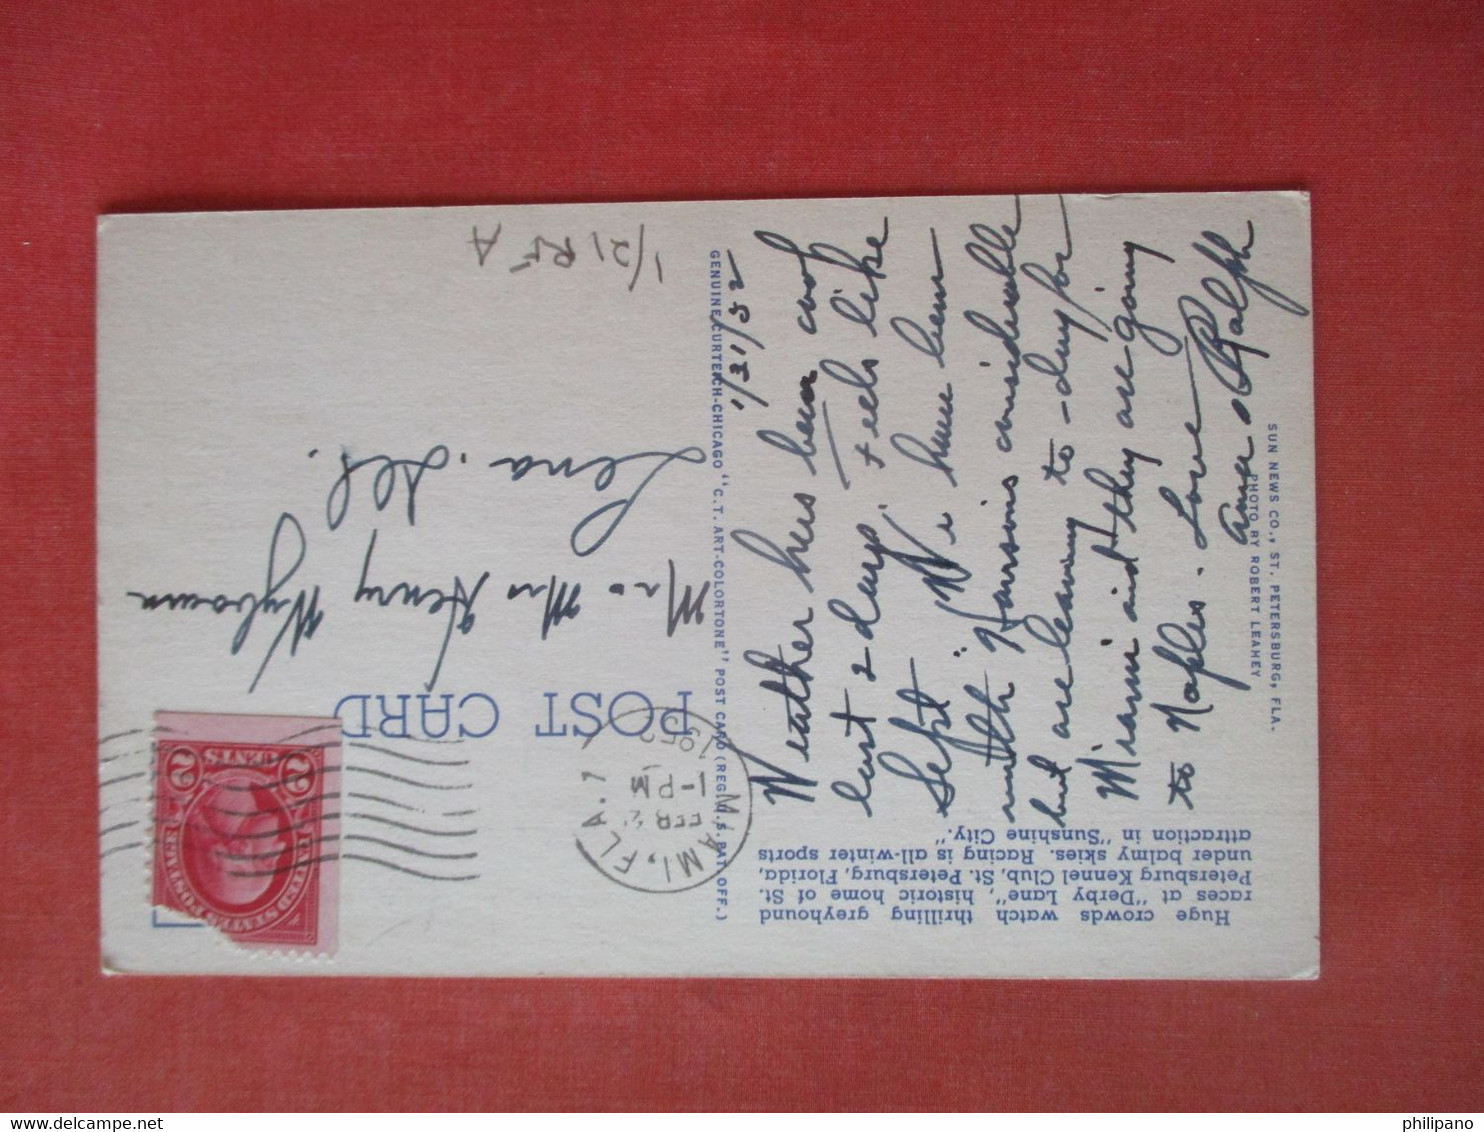 Huge crowds watch thrilling greyhound
races at "Derby Lane", historic home of St.
Petersburg Kennel Club, St. Petersburg, Florida,
under balmy skies. Racing is all-winter sports
attraction in "Sunshine City."
1/31/52
Weather has been cool
last 2 days, + feels like
Sept. We have been
with Hansons considerable
but are leaving to-day for
Miami and they are going
to Naples. Love
Ralph
SUN NEWS CO., ST. PETERSBURG, FLA.
PHOTO BY ROBERT LEAHEY
GENUINE CURTEICH-CHICAGO "C.T. ART-COLORTONE" POST CARD (REG. U.S. PAT. OFF.)
POST CARD
MIAMI, FLA. 7
FEB
1-PM
1952
UNITED STATES POSTAGE
2 CENTS 2
Mr. + Mrs Henry
Lena. Ill.
1/21 RF
A
philipano